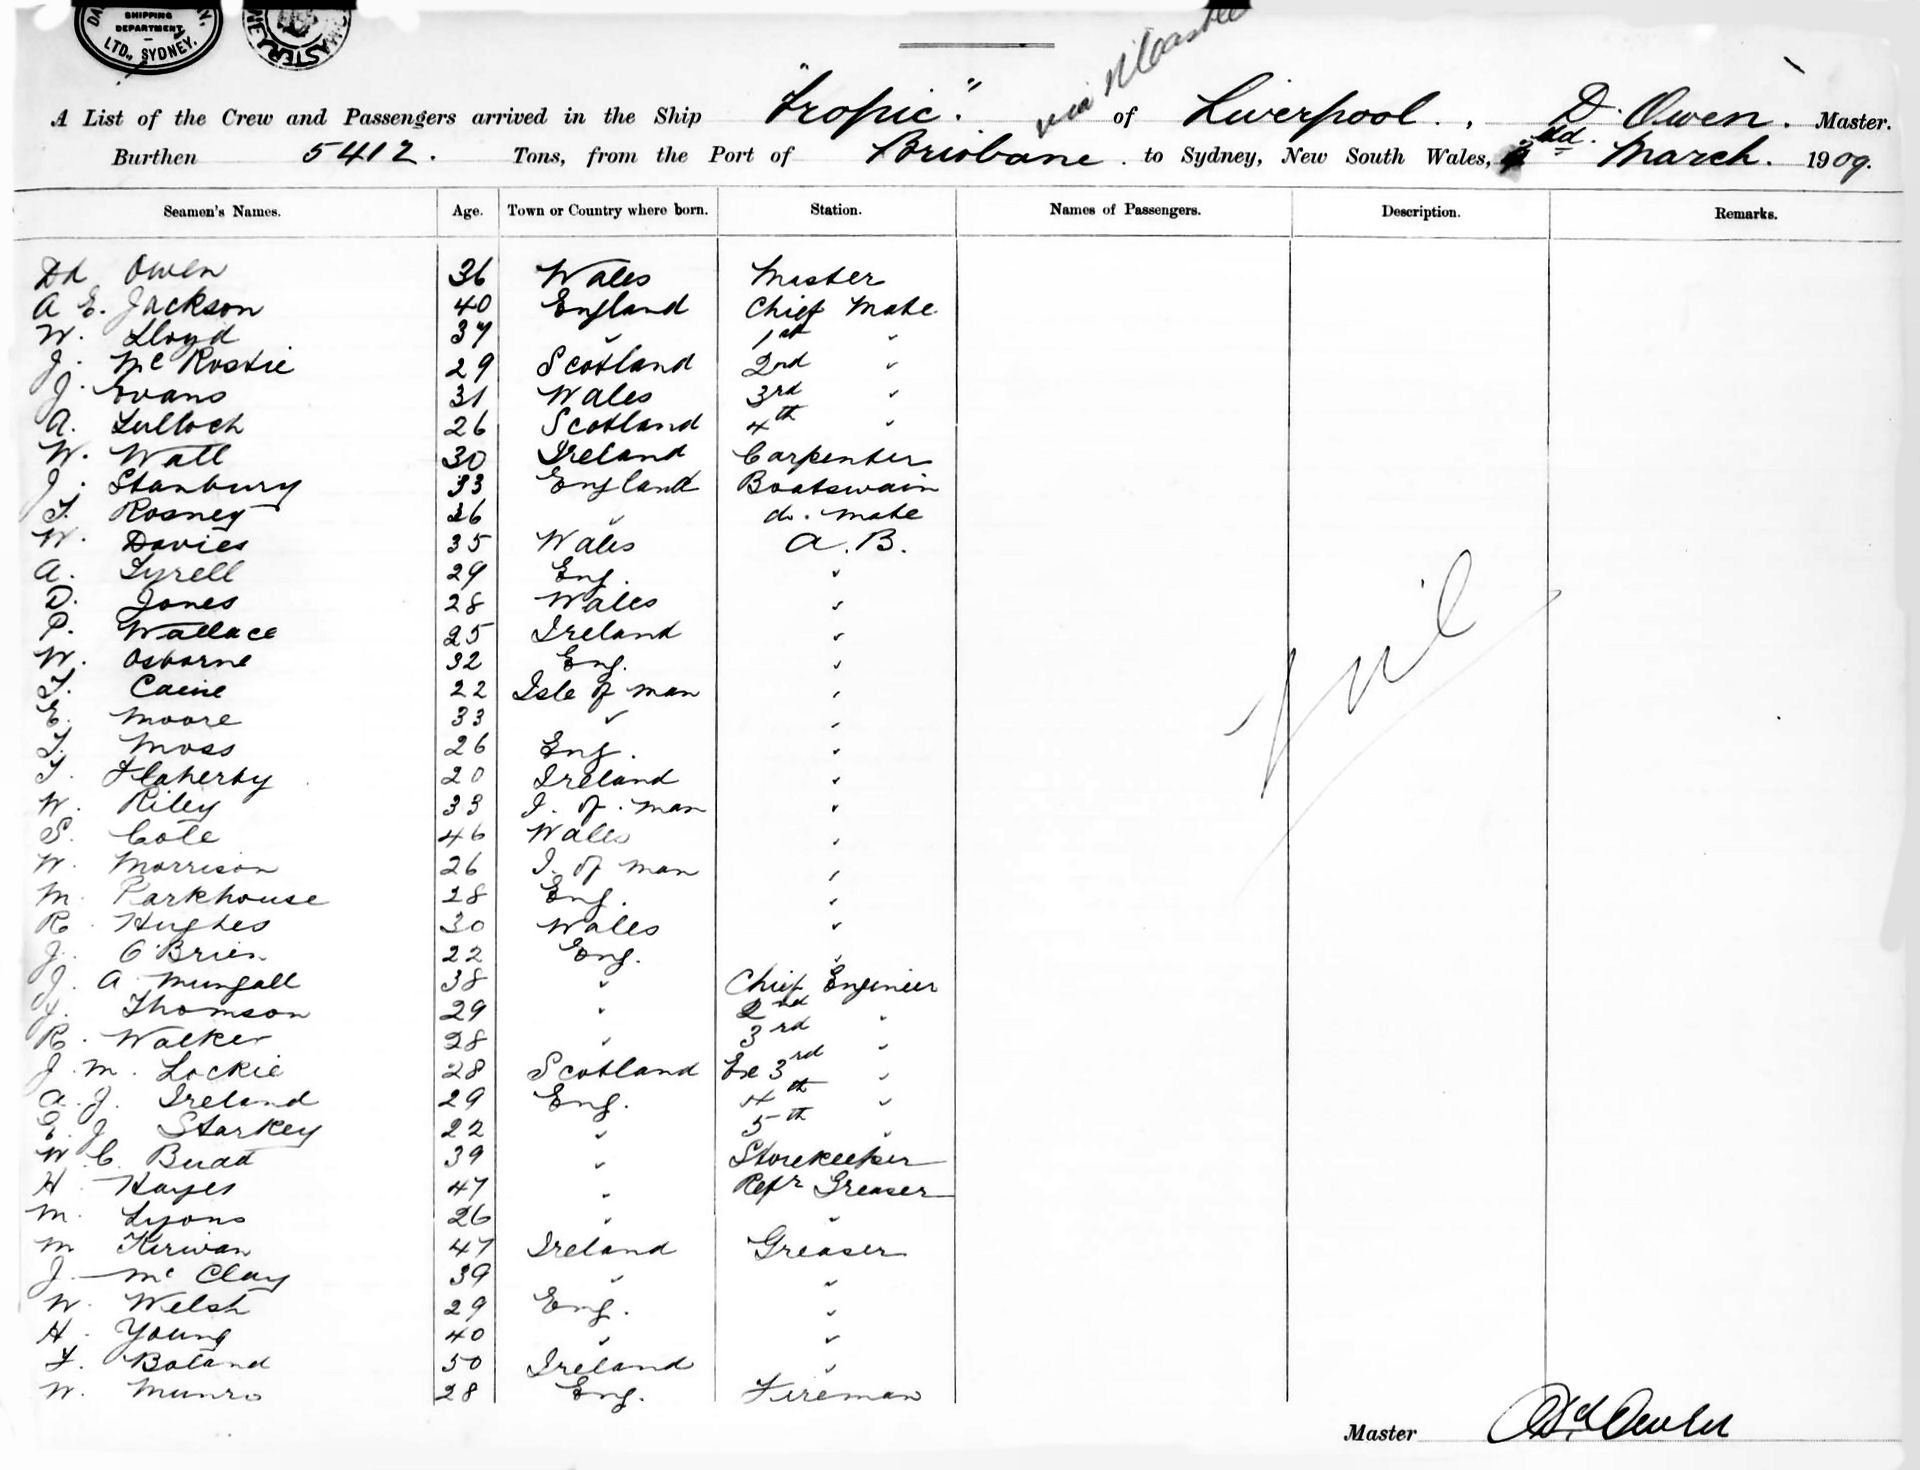 SHIPPING
DEPARTMENT
LTD., SYDNEY.
MASTER
via N'Castle
A List of the Crew and Passengers arrived in the Ship "Tropic". of Liverpool. , D. Owen. Master.
Burthen 5412. Tons, from the Port of Brisbane. to Sydney, New South Wales, March. 1909.
Seamen's Names. Age. Town or Country where born. Station. Names of Passengers. Description. Remarks.
Dd Owen 36 Wales Master
A E. Jackson 40 England Chief Mate
W. Lloyd 37 " 1st "
J. McRostie 29 Scotland 2nd "
J. Evans 31 Wales 3rd "
A. Tulloch 26 Scotland 4th "
W. Watt 30 Ireland Carpenter
J. Stanbury 33 England Boatswain
T. Rosney 26 " do. mate
W. Davies 35 Wales A.B.
A. Tyrell 29 Eng. "
D. Jones 28 Wales "
P. Wallace 25 Ireland "
W. Osborne 32 Eng. "
T. Caine 22 Isle of man "
E. Moore 33 " "
T. Moss 26 Eng. "
T. Flaherty 20 Ireland "
W. Riley 33 I. of. man "
S. Cole 46 Wales "
W. Morrison 26 I. of man "
M. Parkhouse 28 Eng. "
R. Hughes 30 Wales "
J. O'Brien 22 Eng. "
J. A Mungall 38 " Chief Engineer
J. Thomson 29 " 2nd "
R. Walker 28 " 3rd "
J. M. Lockie 28 Scotland Ex 3rd "
A. J. Ireland 29 Eng. 4th "
E. J. Starkey 22 " 5th "
W. C. Budd 39 " Storekeeper
H. Hayes 47 " Refr Greaser
M. Lyons 26 " "
M Kirwan 47 Ireland Greaser
J. McClay 39 " "
W. Welsh 29 Eng. "
H. Young 40 " "
F. Boland 50 Ireland "
W. Munro 28 Eng. Fireman
Nil
Master Dd Owen